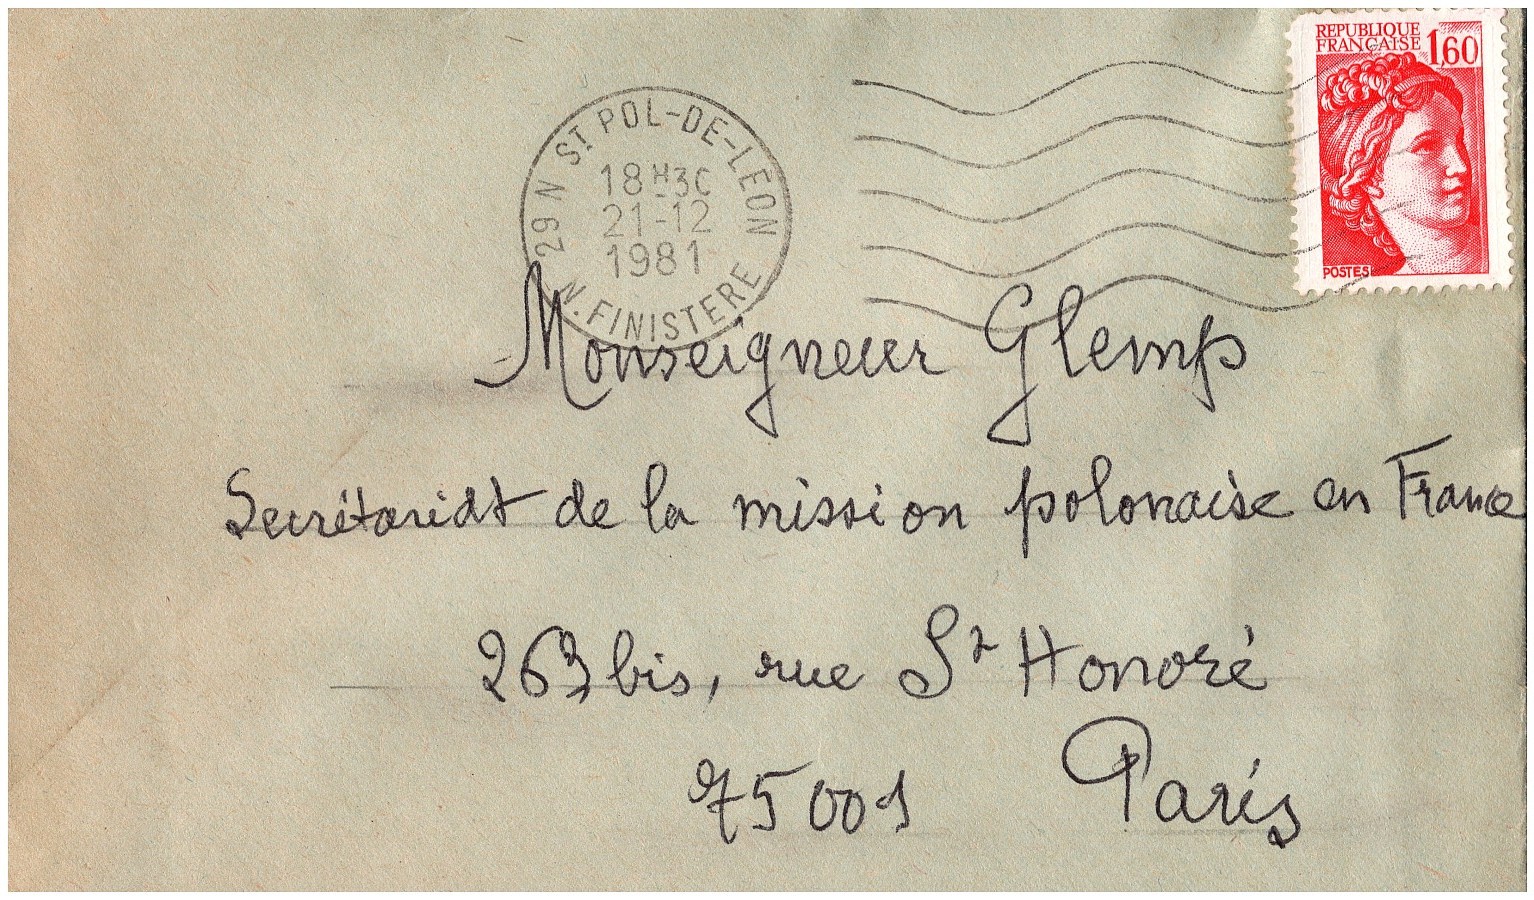 REPUBLIQUE
FRANÇAISE 1,60
POSTES
29 N ST POL-DE-LÉON
18H30
21-12
1981
N. FINISTERE
Monseigneur Glemp
Secrétariat de la mission polonaise en France
263 bis, rue St Honoré
75001 Paris